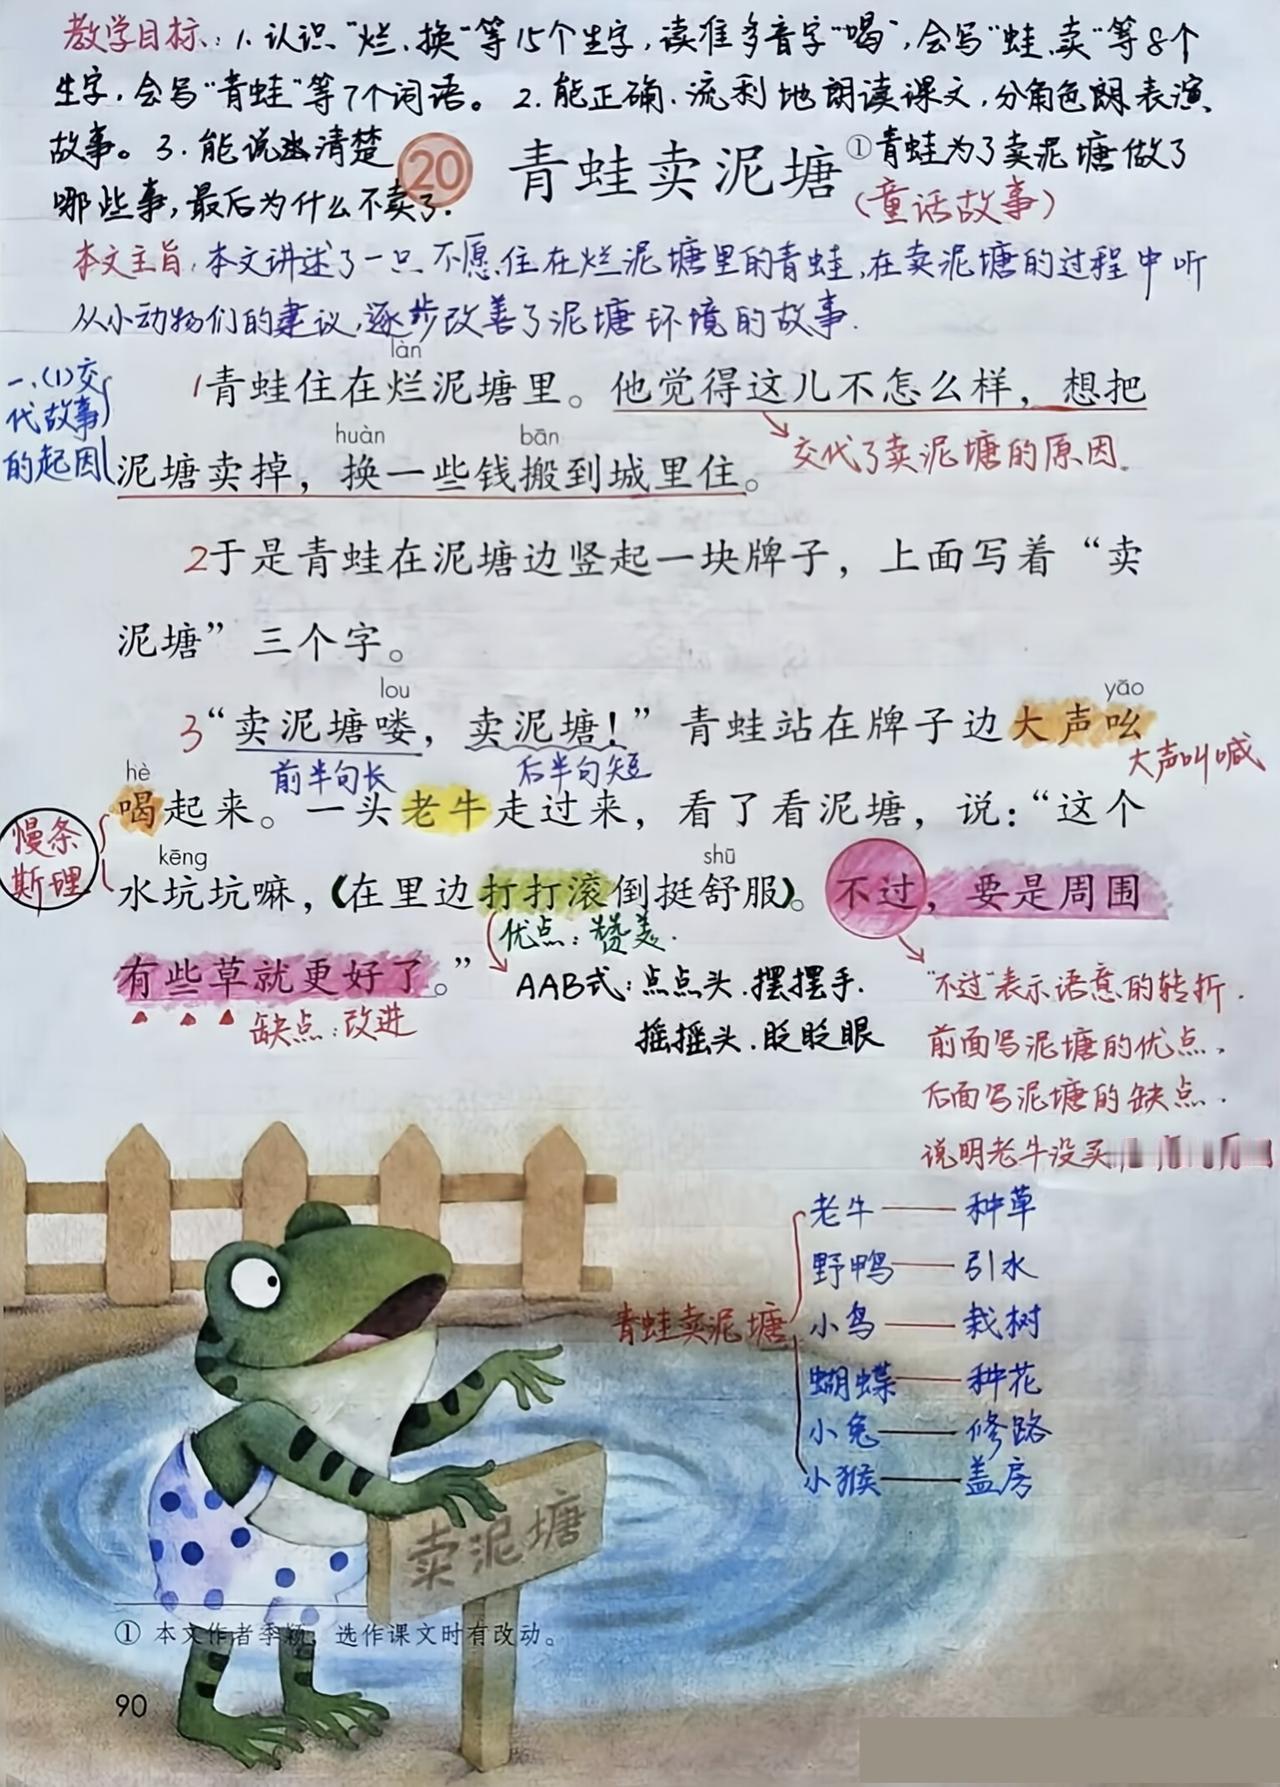 教学目标：1.认识“烂、换”等15个生字，读准多音字“喝”，会写“蛙、卖”等8个
生字，会写“青蛙”等7个词语。2.能正确、流利地朗读课文，分角色朗表演
故事。3.能说出清楚
20 青蛙卖泥塘①
青蛙为了卖泥塘做了
哪些事，最后为什么不卖了.
（童话故事）
本文主旨：本文讲述了一只不愿住在烂泥塘里的青蛙，在卖泥塘的过程中听
从小动物们的建议，逐步改善了泥塘环境的故事.
一、(1)交
代故事
的起因
làn
1青蛙住在烂泥塘里。他觉得这儿不怎么样，想把
huàn bān
泥塘卖掉，换一些钱搬到城里住。
交代了卖泥塘的原因。
2于是青蛙在泥塘边竖起一块牌子，上面写着“卖
泥塘”三个字。
lou yāo
3“卖泥塘喽，卖泥塘！”青蛙站在牌子边大声吆
前半句长 后半句短 大声叫喊
hè
喝起来。一头老牛走过来，看了看泥塘，说：“这个
慢条
斯理
kēng shū
水坑坑嘛，(在里边打打滚倒挺舒服)。不过，要是周围
优点：赞美.
有些草就更好了。”
缺点：改进
AAB式：点点头.摆摆手.
摇摇头.眨眨眼
“不过”表示语意的转折.
前面写泥塘的优点，
后面写泥塘的缺点.
说明老牛没买
青蛙卖泥塘
老牛——种草
野鸭——引水
小鸟——栽树
蝴蝶——种花
小兔——修路
小猴——盖房
卖泥塘
① 本文作者李颖，选作课文时有改动。
90